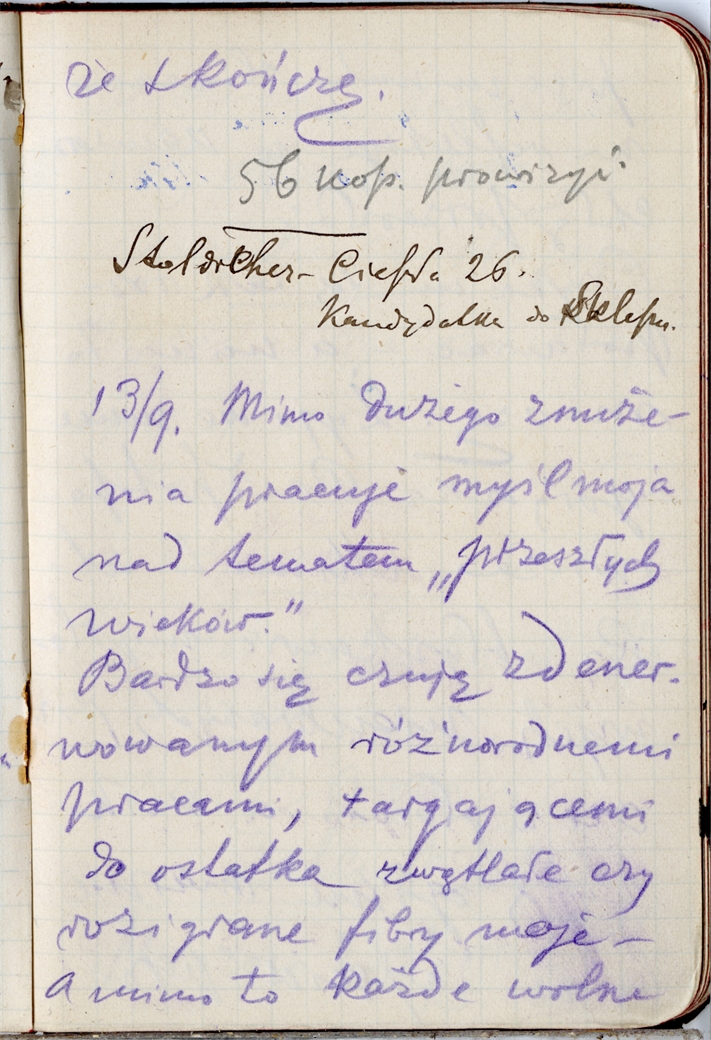 że skończę.
56 kop. prowizyi.
Ciepła 26.
Kandydatka do Sklepu.
13/9. Mimo dużego znuże-
nia pracuje myśl moja
nad tematem „przeszłych
wieków."
Bardzo się czuję zdener-
wowanym różnorodnemi
pracami, targającemi
do ostatka zwątlałe czy
rozigrane fibry moje –
A mimo to każde wolne